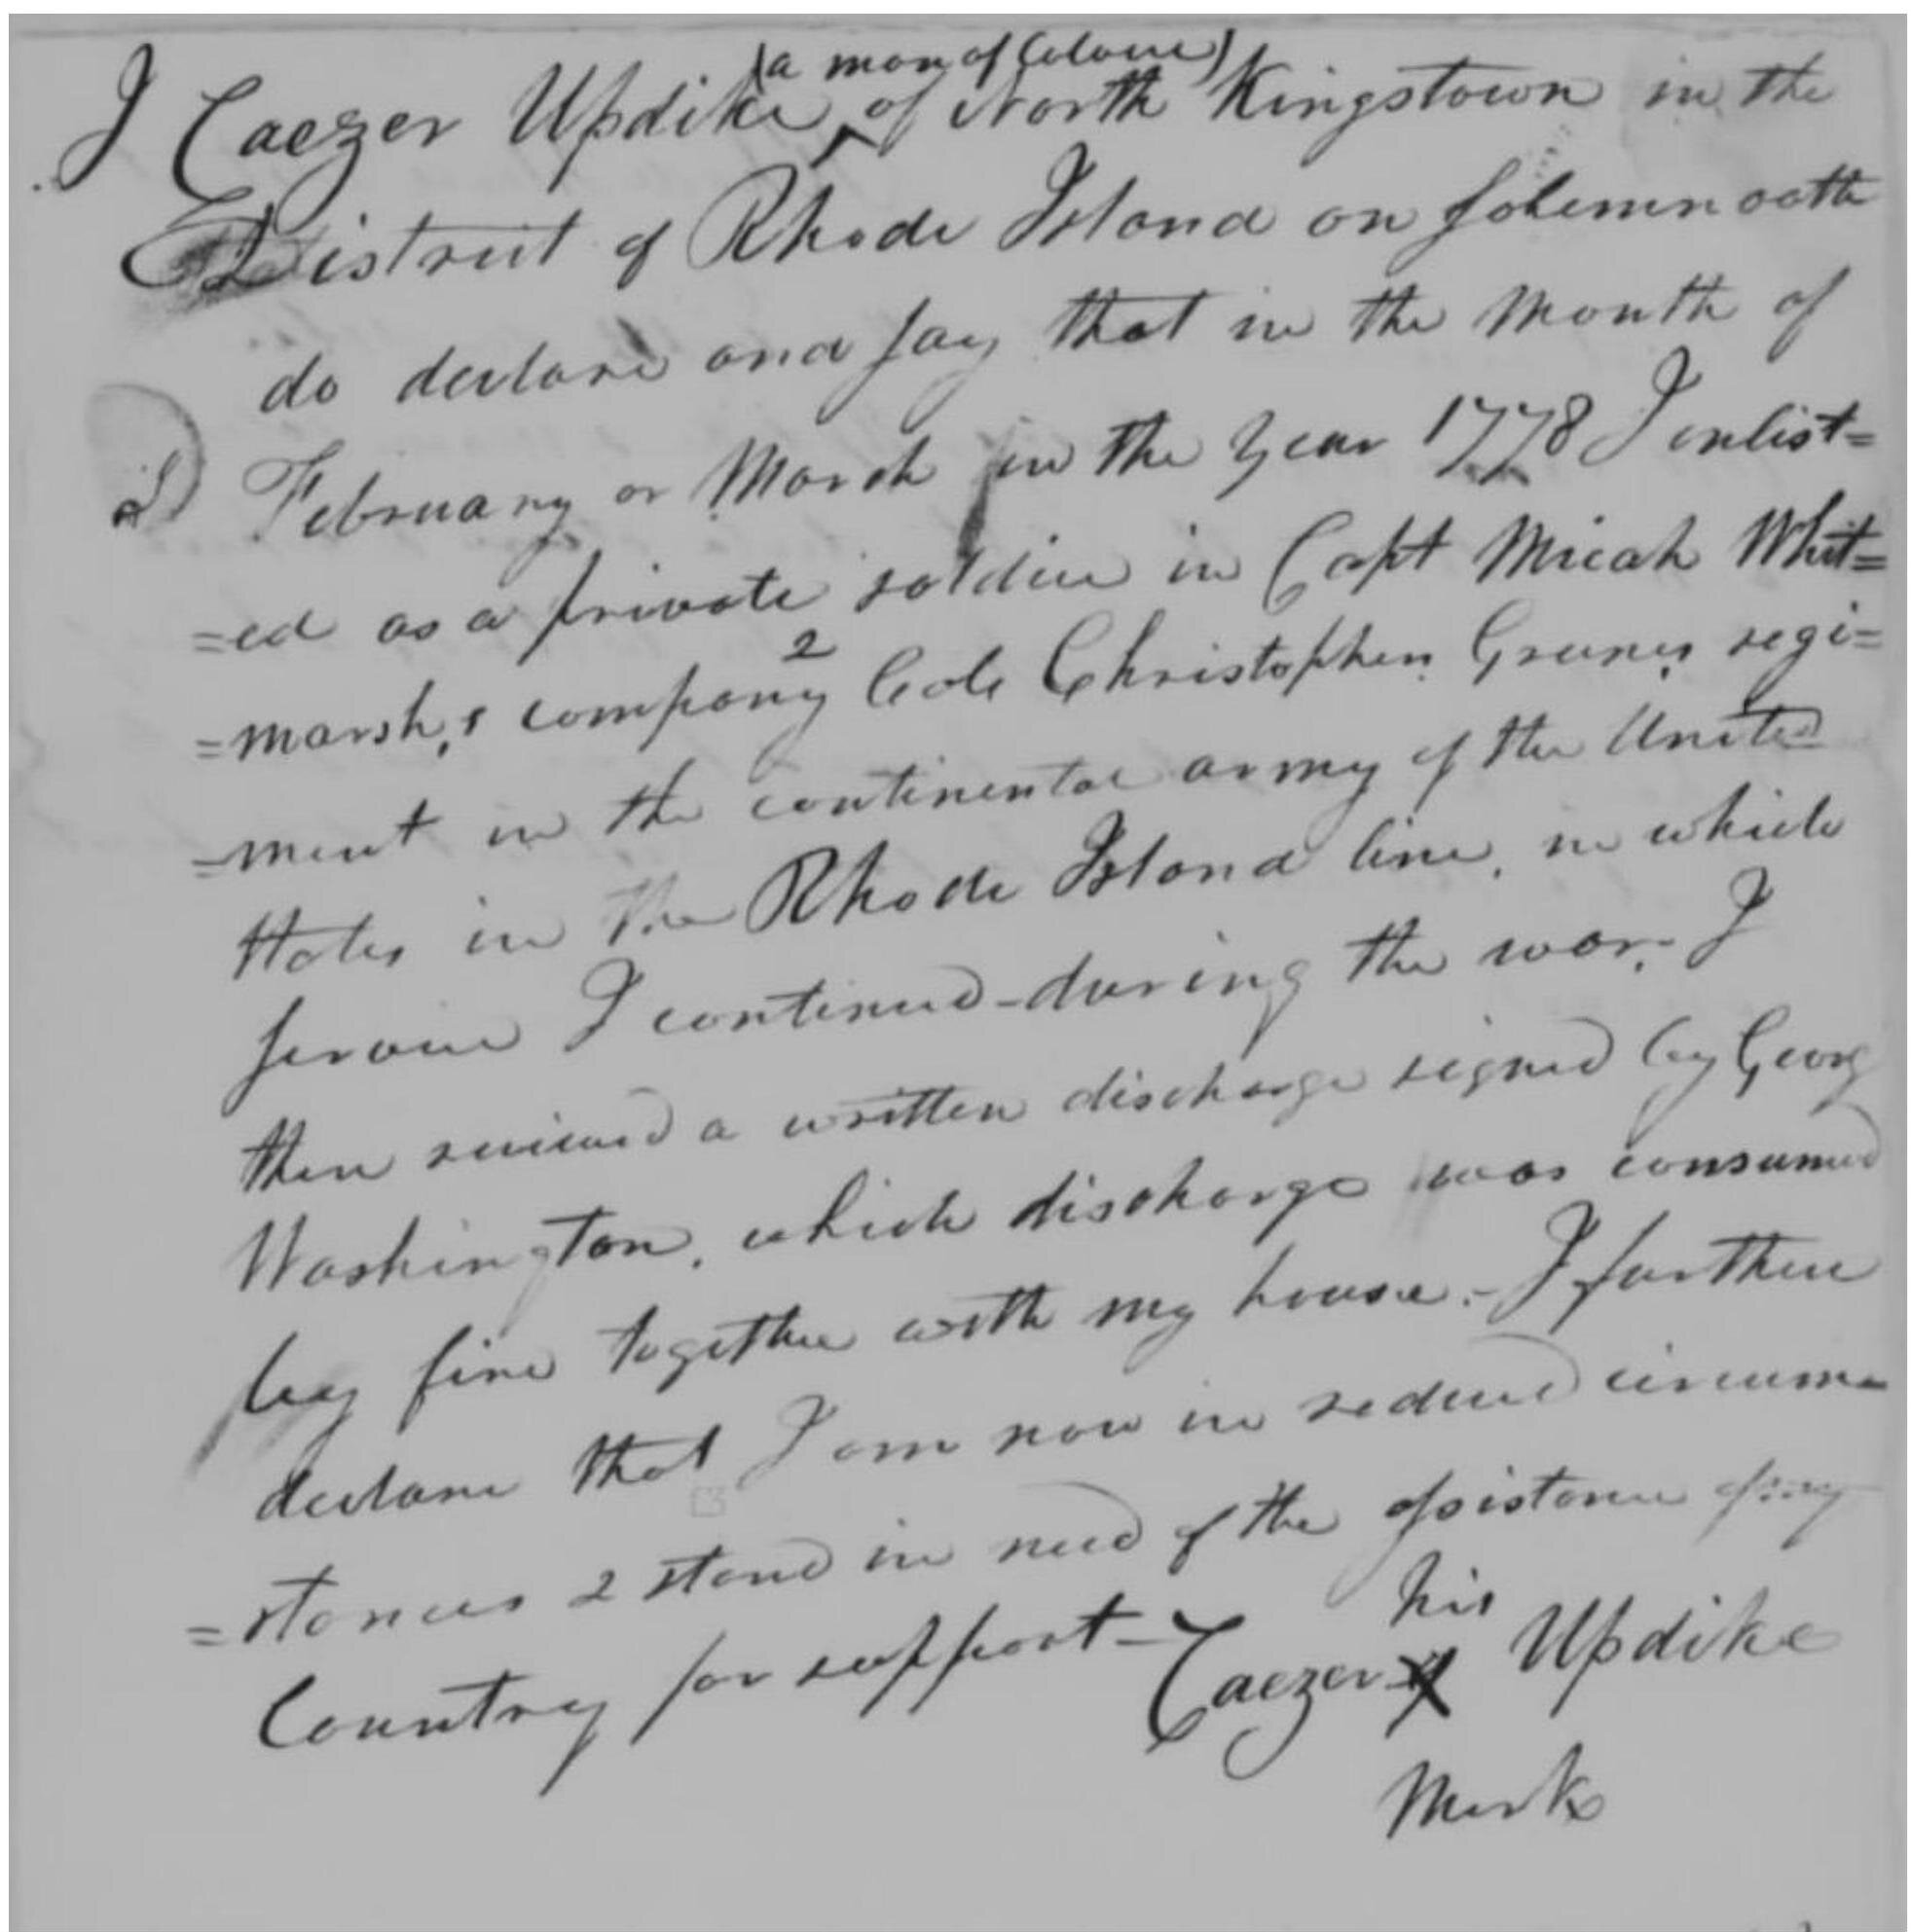 (a man of Coloure)
I Caezer Updike ^ of North Kingstown in the
District of Rhode Island on solemn oath
do declare and say that in the month of
February or March in the year 1778 I enlist=
=ed as a private soldier in Capt Micah Whit=
=marsh,s company & Colo Christopher Greenes regi=
=ment in the continental army of the United
States in the Rhode Island line, in which
service I continued during the war. - I
then received a written discharge signed by Georg
Washington, which discharge was consumed
by fire together with my house. - I further
declare that I am now in reduced circum=
=stances & stand in need of the assistance of my
Country for support -
his
Caezer X Updike
Mark